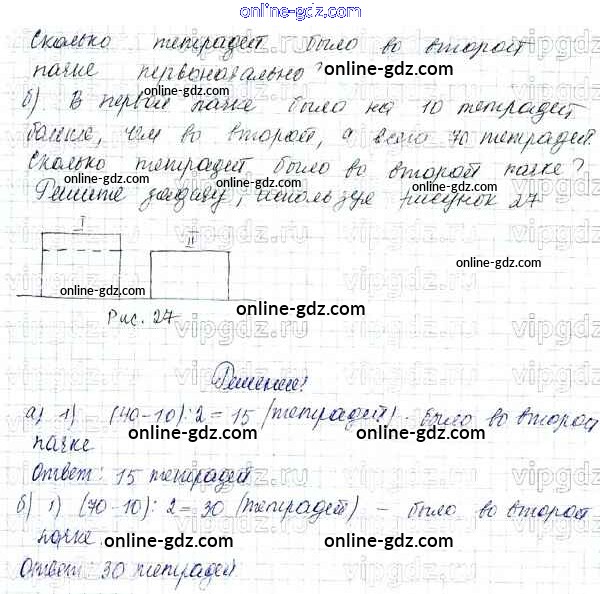 online-gdz.com
Сколько тетрадей было во второй
пачке первоначально?
online-gdz.com
б). В первой пачке было на 10 тетрадей
online-gdz.com
больше, чем во второй, а всего 70 тетрадей.
online-gdz.com
Сколько тетрадей было во второй пачке?
online-gdz.com
Решите задачу, используя рисунок 27
I II
online-gdz.com
Рис. 27
online-gdz.com
vipgdz.ru
Решение:
online-gdz.com
а) 1) (40-10):2=15 (тетрадей) - было во второй
пачке
online-gdz.com
Ответ: 15 тетрадей
online-gdz.com
б) 1) (70-10): 2=30 (тетрадей) - было во второй
пачке
online-gdz.com
Ответ: 30 тетрадей
online-gdz.com